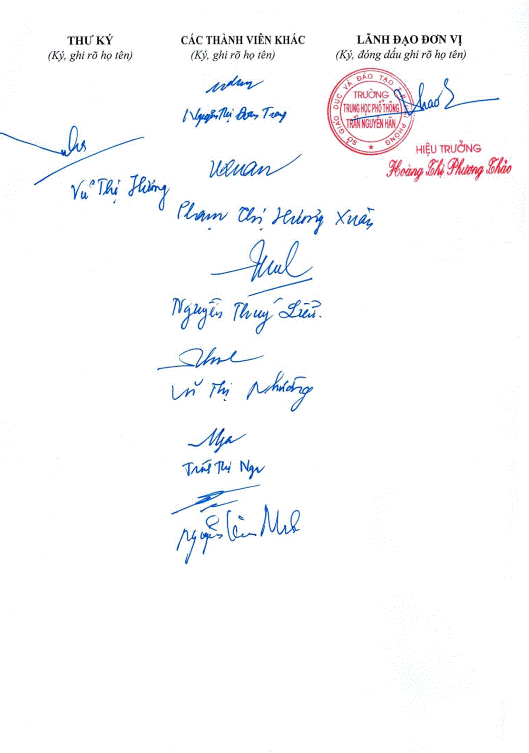 THƯ KÝ
(Ký, ghi rõ họ tên)
Vũ Thị Hương
CÁC THÀNH VIÊN KHÁC
(Ký, ghi rõ họ tên)
Nguyễn Thị Đoan Trang
Phạm Thị Hương Xuân
Nguyễn Thuý Liễu.
Vũ Thị Nhường
Trần Thị Nga
Nguyễn Văn
LÃNH ĐẠO ĐƠN VỊ
(Ký, đóng dấu ghi rõ họ tên)
SỞ GIÁO DỤC VÀ ĐÀO TẠO
TRƯỜNG
TRUNG HỌC PHỔ THÔNG
TRẦN NGUYÊN HÃN
HIỆU TRƯỞNG
Hoàng Thị Phương Thảo